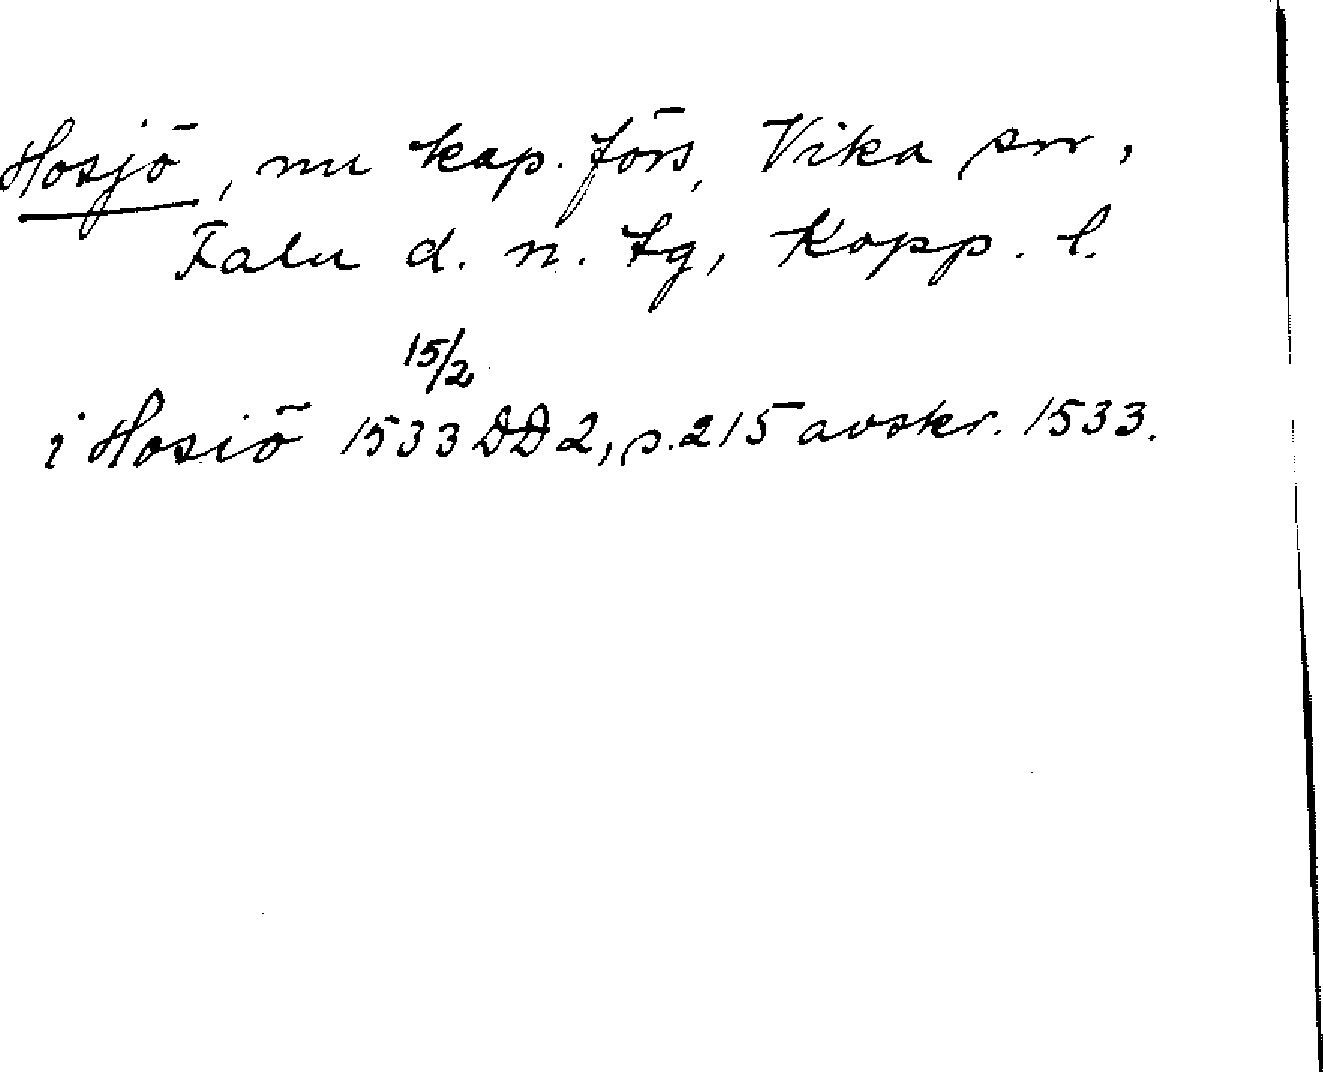 Hosjö, nu kap. förs, Vika sn,
Falu d. n. tg, Kopp. l.
15/2
i Hosiö 1533 DD 2, s. 215 avskr. 1533.